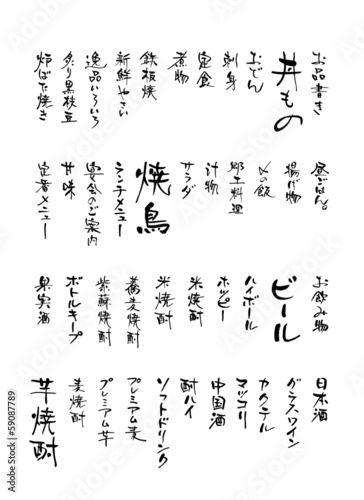 お品書き
丼もの
おでん
刺身
定食
煮物
鉄板焼
新鮮やさい
逸品いろいろ
炙り黒枝豆
炉ばた焼き
昼ごはん。
揚げ物
〆の飯
郷土料理
汁物
サラダ
焼鳥
ランチメニュー
宴会のご案内
甘味
定番メニュー
お飲み物
ビール
ハイボール
ホッピー
米焼酎
米焼酎
蕎麦焼酎
紫蘇焼酎
ボトルキープ
果実酒
日本酒
グラスワイン
カクテル
マッコリ
中国酒
酎ハイ
ソフトドリンク
プレミアム麦
プレミアム芋
麦焼酎
芋焼酎
Adobe Stock
#59087789